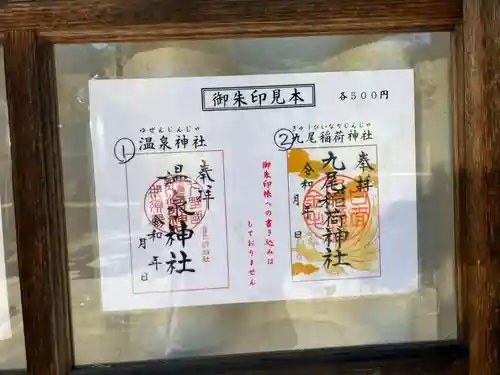 御朱印見本
各500円
① 
ゆぜんじんじゃ
温泉神社
奉拝
温泉神社
令和 年
月 日
御朱印帳への書き込みは
しておりません
②
きゅうびいなりじんじゃ
九尾稲荷神社
奉拝
九尾稲荷神社
令和 年
月 日